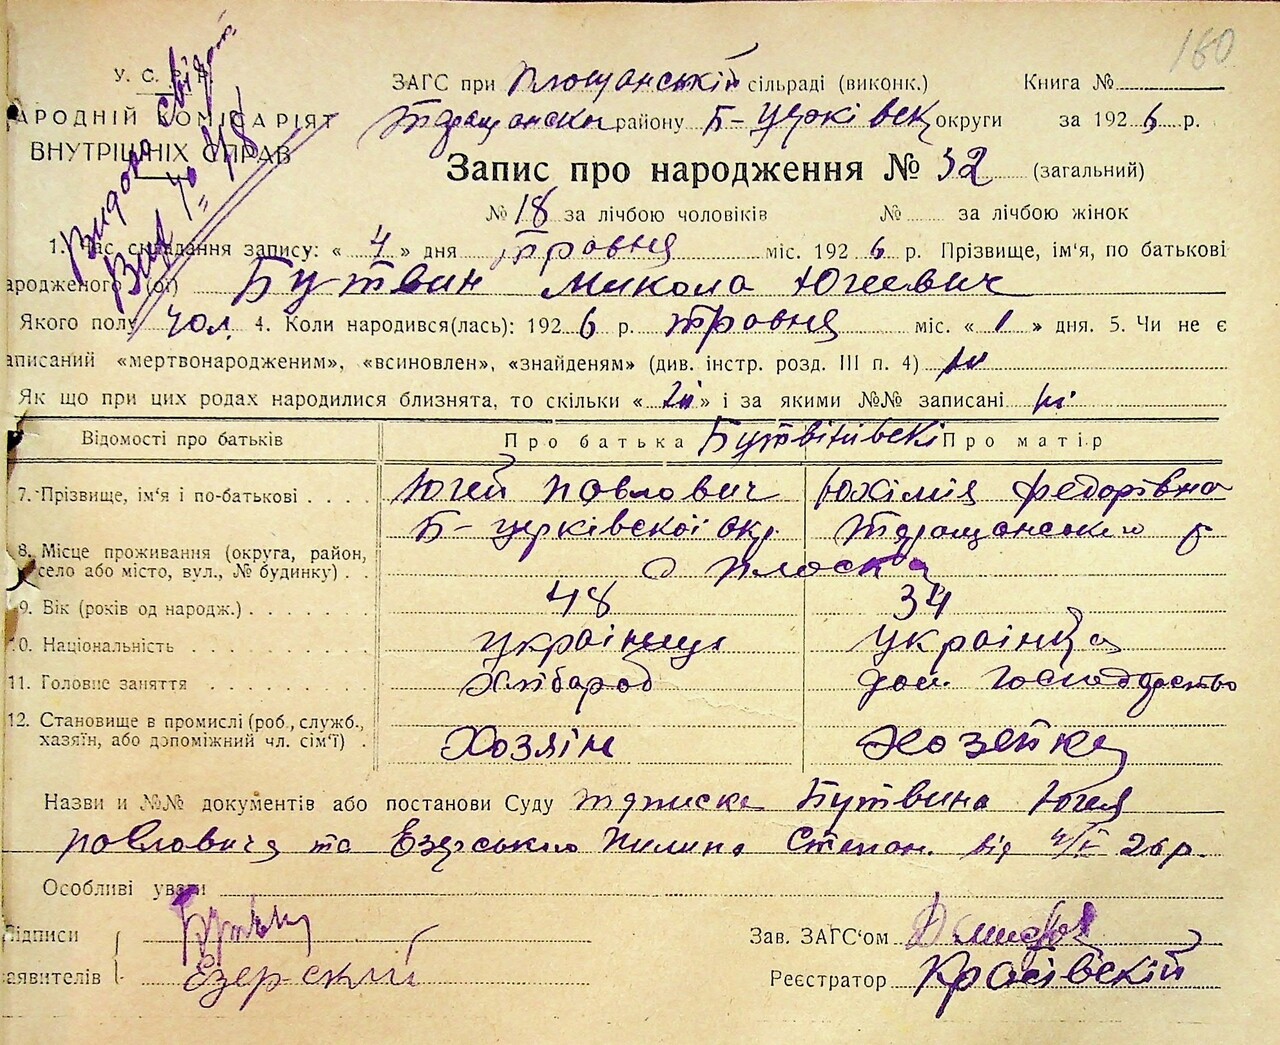 160
У. С. Р. Р.
АРОДНІЙ КОМІСАРІЯТ
ВНУТРІШНІХ СПРАВ
Видано свідот
ЗАГС при Площанській сільраді (виконк.) Книга №
Таращанськ району Б-Церківськ округи за 1926 р.
Запис про народження № 32 (загальний)
№ 18 за лічбою чоловіків № за лічбою жінок
1. Час складання запису: « 4 » дня Травня міс. 1926 р. Прізвище, ім'я, по батькові
ародженого (ої) Бутвин Микола Югиевич
Якого полу чол. 4. Коли народився(лась): 1926 р. травня міс. « 1 » дня. 5. Чи не є
аписаний «мертвонародженим», «всиновлен», «знайденям» (див. інстр. розд. III п. 4) ні
Як що при цих родах народилися близнята, то скільки « ні » і за якими №№ записані ні
Відомості про батьків Про батька Про матір
7. Прізвище, ім'я і по-батькові Югей Павлович Юхимія Федорівна
Б-церківської окр. Таращанського р
8. Місце проживання (округа, район,
село або місто, вул., № будинку) с Плоска
9. Вік (років од народж.) 48 34
10. Національність українець українка
11. Головне заняття Хлібароб дом. Господарство
12. Становище в промислі (роб., служб.,
хазяїн, або допоміжний чл. сім'ї) Хозяін Хозяйка
Назви и №№ документів або постанови Суду підписка Бутвина Югея
Павловича та Езерського Пилипа Степан. від 4/V 26 р.
Особливі уваги
Підписи
аявителів Езерский
Зав. ЗАГС'ом
Реєстратор Красівский